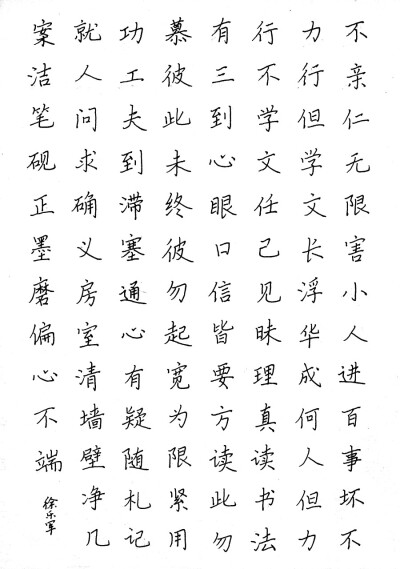 不亲仁无限害小人进百事坏不
力行但学文长浮华成何人但力
行不学文任己见昧理真读书法
有三到心眼口信皆要方读此勿
慕彼此未终彼勿起宽为限紧用
功工夫到滞塞通心有疑随札记
就人问求确义房室清墙壁净几
案洁笔砚正墨磨偏心不端
徐乐军